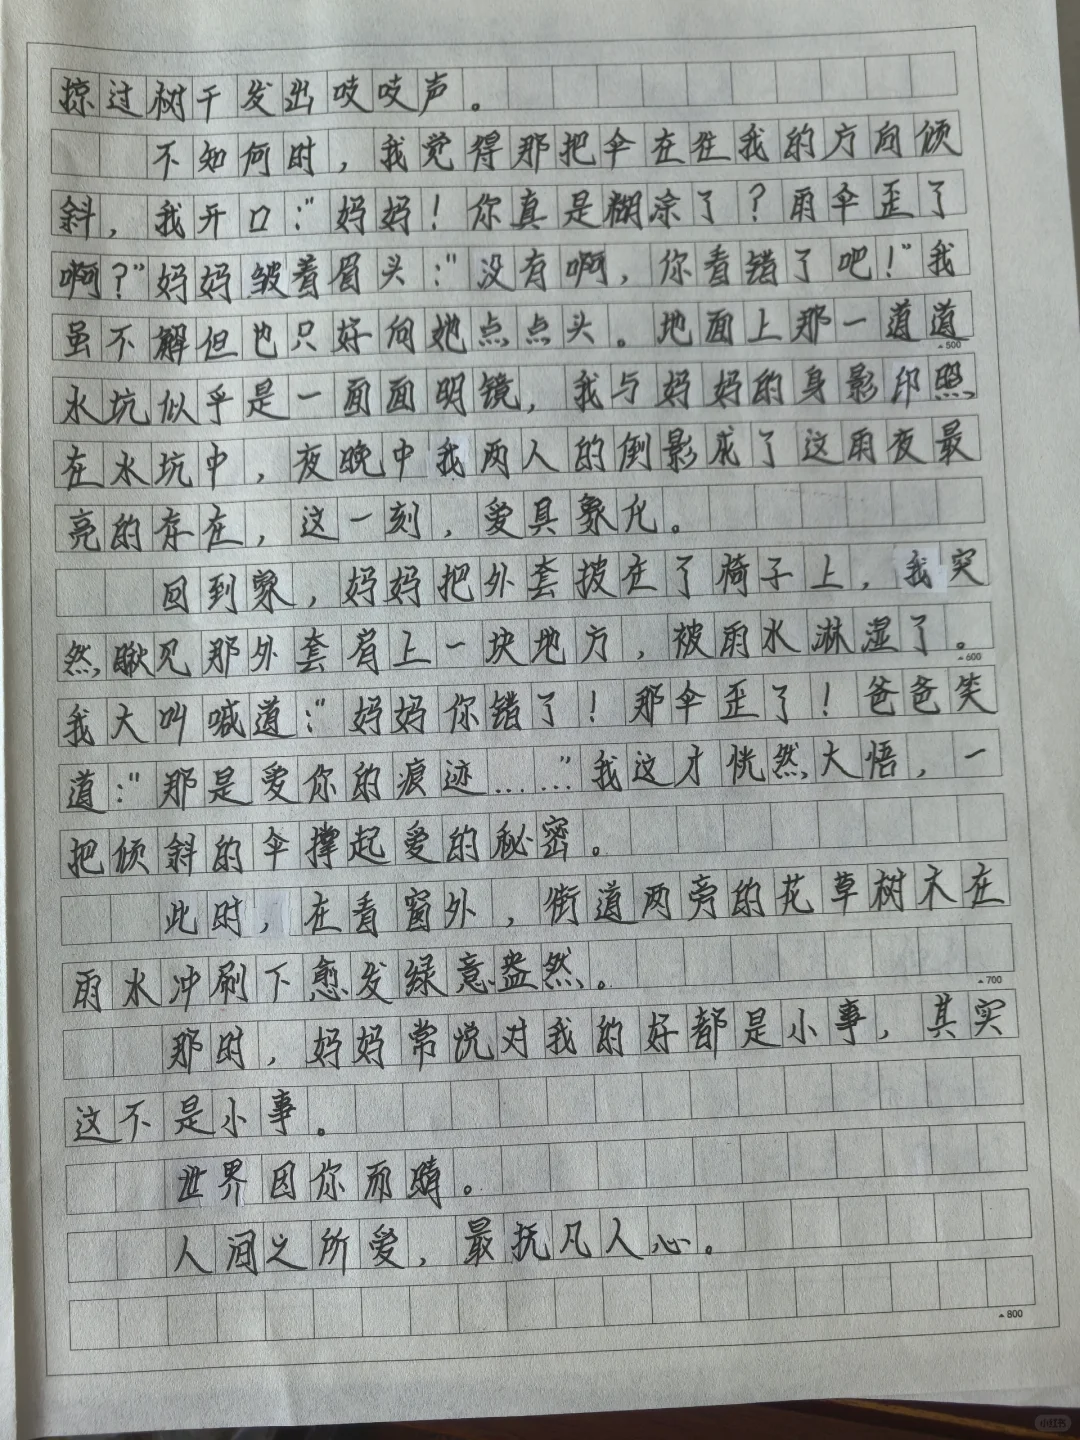 掠过树干发出吱吱声。
不知何时，我觉得那把伞在往我的方向倾
斜，我开口："妈妈！你真是糊涂了？雨伞歪了
啊？"妈妈皱着眉头："没有啊，你看错了吧！"我
虽不解但也只好向她点点头。地面上那一道道
▲500
水坑似乎是一面面明镜，我与妈妈的身影印照
在水坑中，夜晚中我两人的倒影成了这雨夜最
亮的存在，这一刻，爱具象化。
回到家，妈妈把外套披在了椅子上，我突
然瞅见那外套肩上一块地方，被雨水淋湿了。
▲600
我大叫喊道："妈妈你错了！那伞歪了！爸爸笑
道："那是爱你的痕迹……"我这才恍然大悟，一
把倾斜的伞撑起爱的秘密。
此时，在看窗外，街道两旁的花草树木在
雨水冲刷下愈发绿意盎然。
▲700
那时，妈妈常说对我的好都是小事，其实
这不是小事。
世界因你而晴。
人间之所爱，最抚凡人心。
▲800
小红书